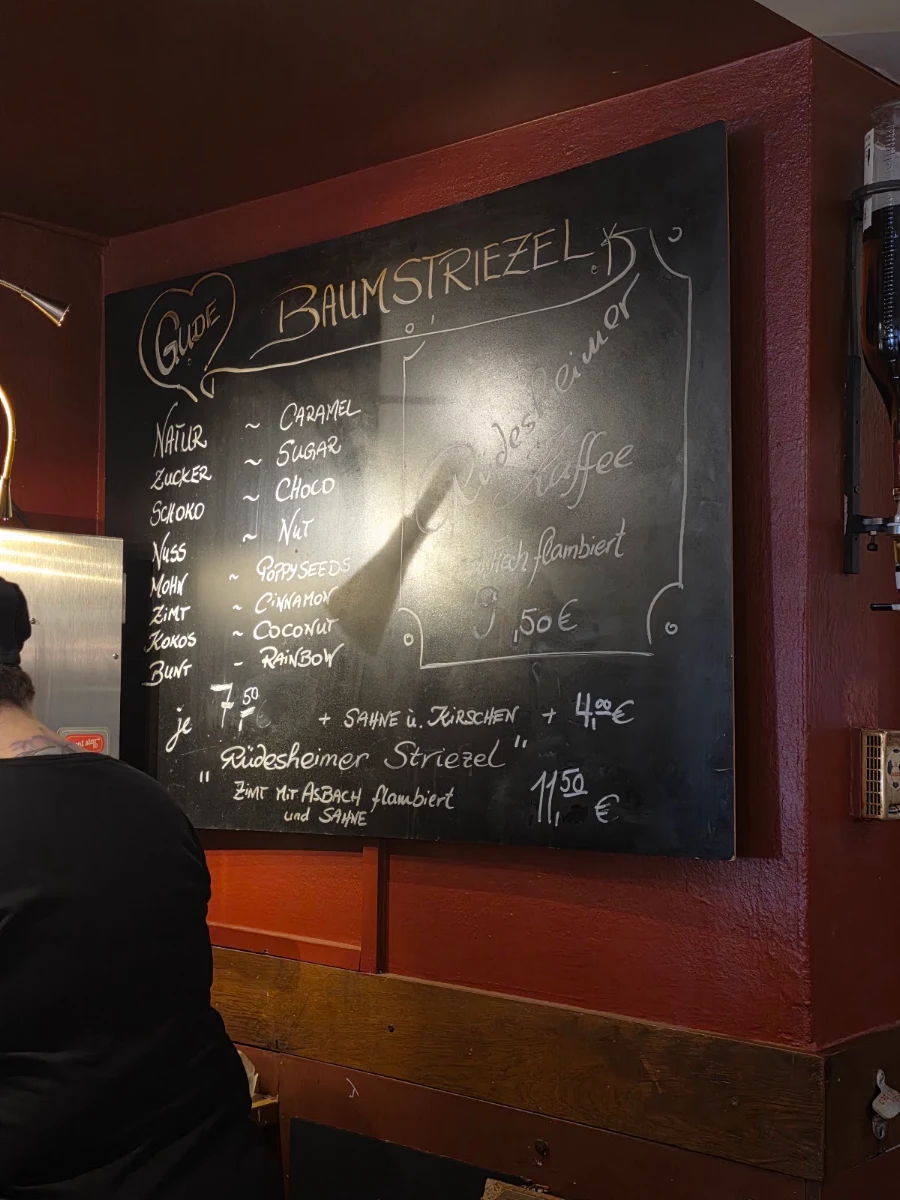 GUDE
BAUMSTRIEZEL
NATUR ~ CARAMEL
ZUCKER ~ SUGAR
SCHOKO ~ CHOCO
NUSS ~ NUT
MOHN ~ POPPYSEEDS
ZIMT ~ CINNAMON
KOKOS ~ COCONUT
BUNT - RAINBOW
je 7,50 €
+ SAHNE u. KIRSCHEN + 4,00 €
"Rüdesheimer Striezel"
ZIMT MIT ASBACH flambiert
und SAHNE
11,50 €
Rüdesheimer
Kaffee
flambiert
9,50 €